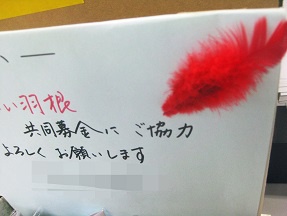 い羽根
共同募金にご協力
よろしくお願いします